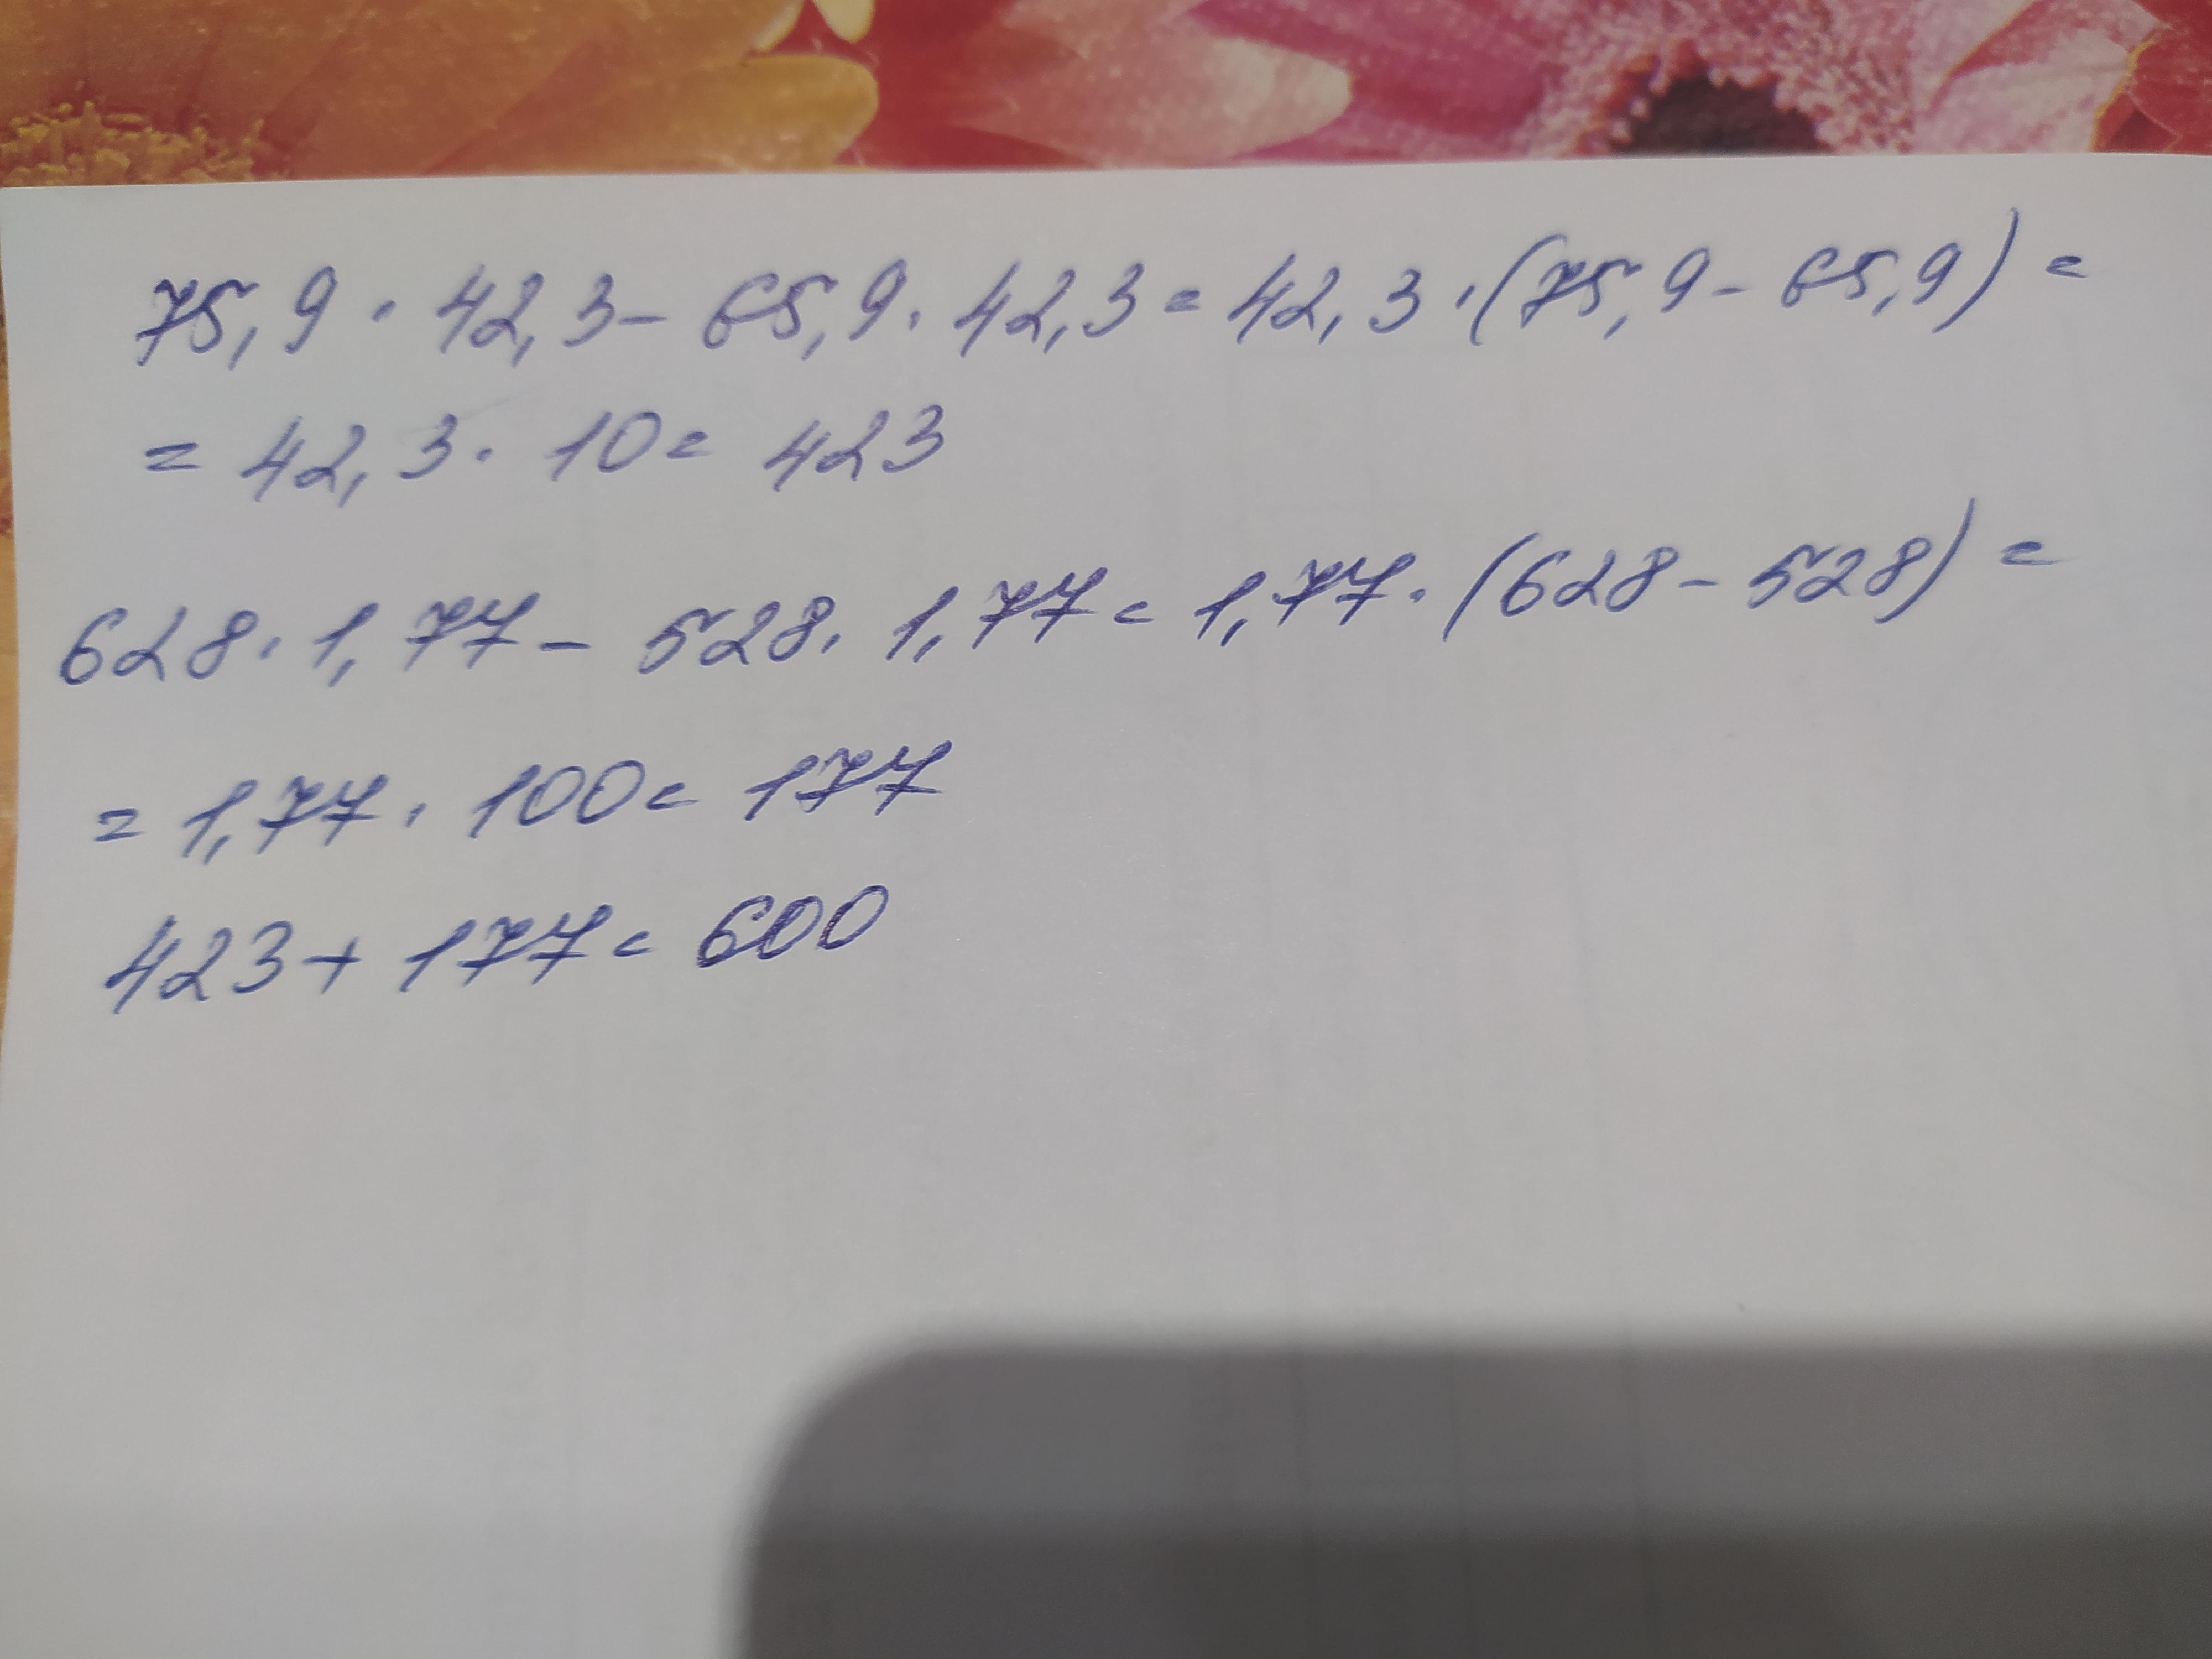 75,9 · 42,3 - 65,9 · 42,3 = 42,3 · (75,9 - 65,9) =
= 42,3 · 10 = 423
628 · 1,77 - 528 · 1,77 = 1,77 · (628 - 528) =
= 1,77 · 100 = 177
423 + 177 = 600